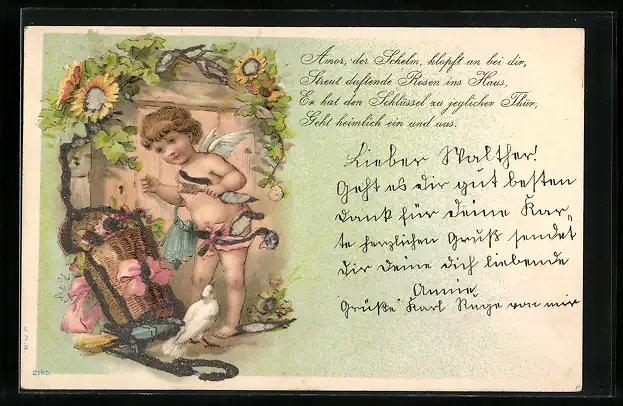 Amor, der Schelm, klopft an bei dir,
Streut duftende Rosen ins Haus,
Er hat den Schlüssel zu jeglicher Thür,
Geht heimlich ein und aus.
Lieber Walther!
Geht es dir gut besten
Dank für deine Kar-
te herzlichen Gruß sendet
dir deine dich liebende
Annie
Grüße Karl Ruge von mir
2195